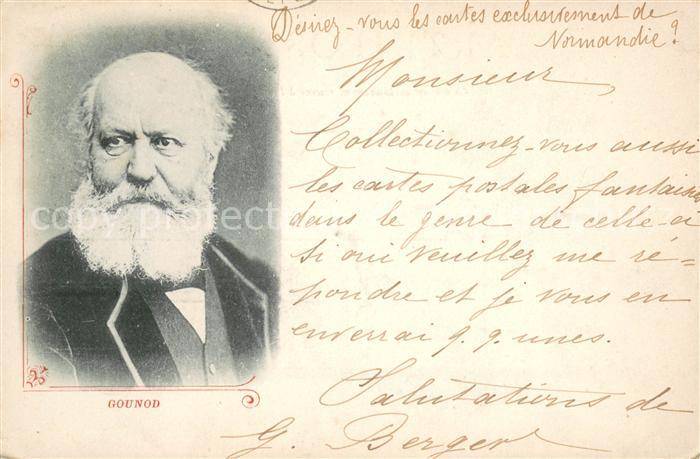 Désirez-vous les cartes exclusivement de
Normandie?
Monsieur,
Collectionnez-vous aussi
les cartes postales fantaisies
dans le genre de celle-ci
si oui veuillez me ré-
pondre et je vous en
enverrai q.q. unes.
Salutations de
G. Berger
GOUNOD